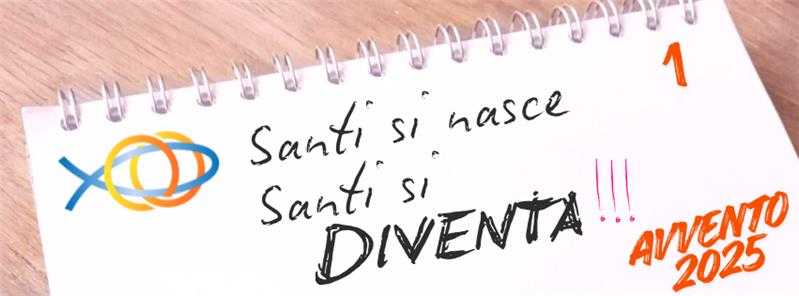 1
Santi si nasce
Santi si
DIVENTA!!!
AVVENTO
2025